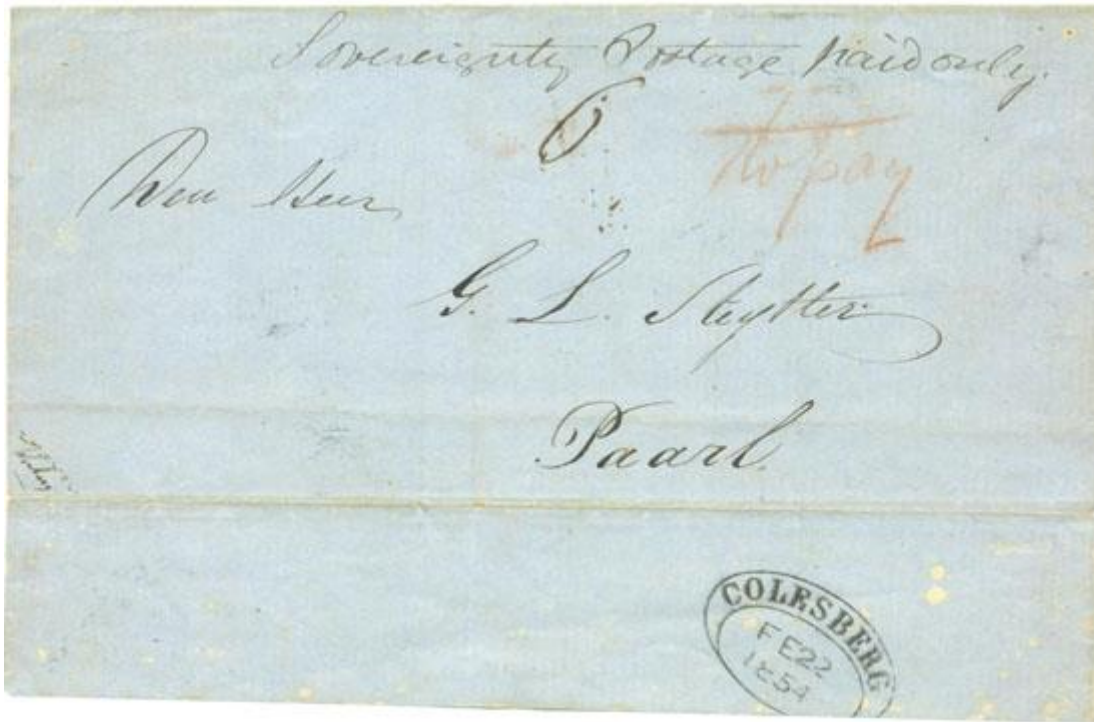 Sovereignty Postage paid only.
6
To pay
Den Heer
G. L.
Paarl.
COLESBERG
FE22
1854